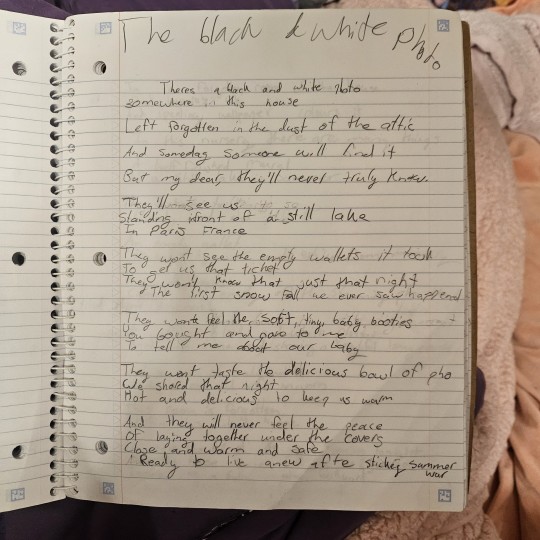 The black & white photo
Theres a black and white photo
somewhere in this house
Left forgotten in the dust of the attic
And someday someone will find it
But my dear, they'll never truly know.
They'll see us
Standing infront of a still lake
In Paris France
They wont see the empty wallets it took
To get us that ticket
They won't know that just that night
The first snow fall we ever saw happened
They wont feel the soft, tiny, baby booties
You bought and gave to me
To tell me about our baby
They wont taste the delicious bowl of pho
We shared that night
Hot and delicious to keep us warm
And they will never feel the peace
Of laying together under the covers
Close and warm and safe
Ready to live anew afte stickey summer
war